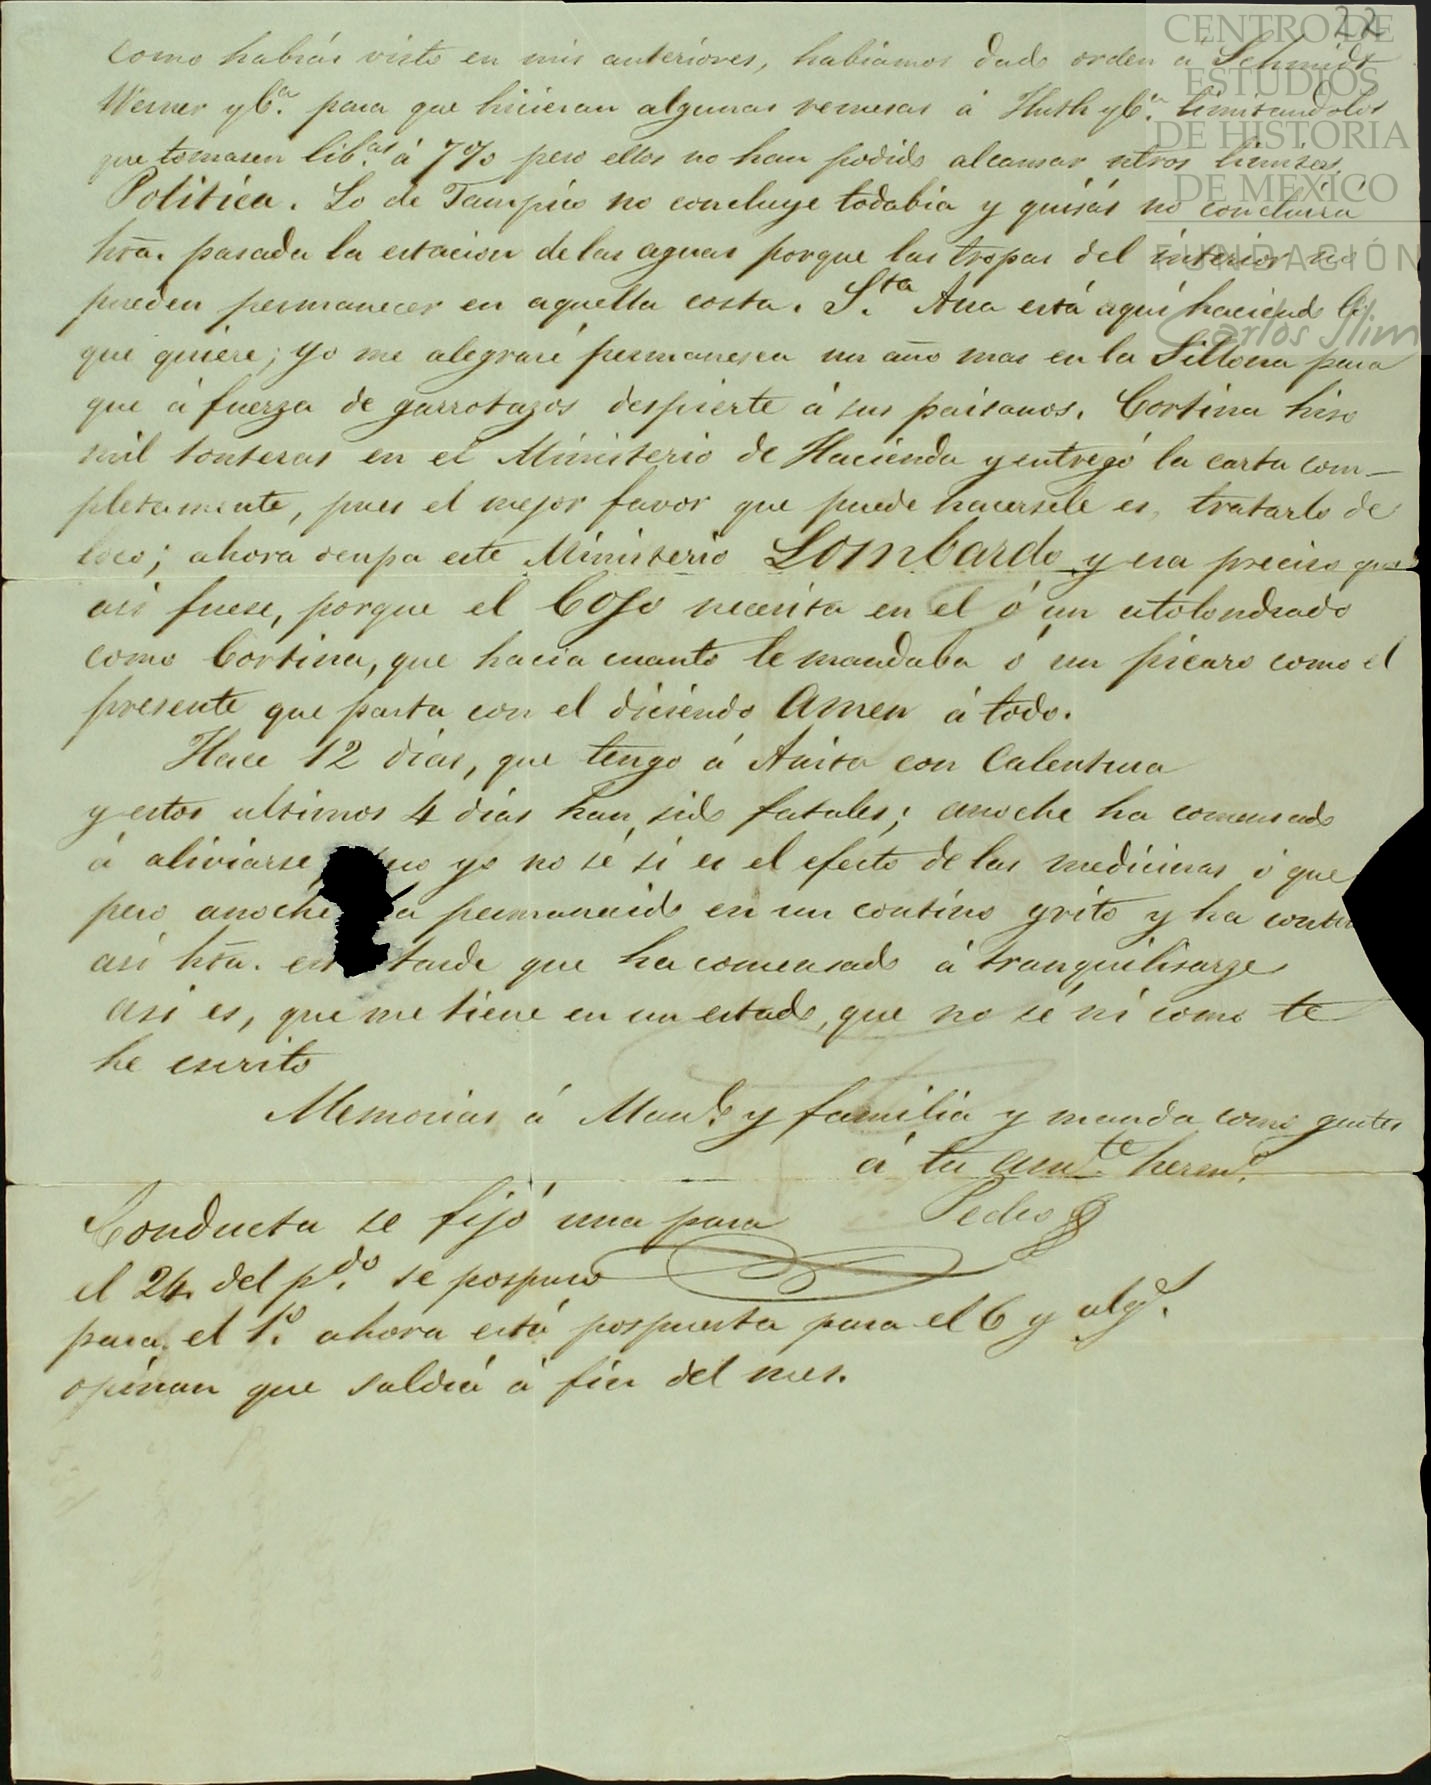 22
CENTRO DE
ESTUDIOS
DE HISTORIA
DE MEXICO
FUNDACIÓN
Carlos Slim
Como habrás visto en mis anteriores, habiamos dado orden á Schmidt
Werner y C.ª para que hicieran algunas remesas á Huth y C.ª limitandolos
que tomasen lib.as á 7% pero ellos no han podido alcansar ntros limites
Politica. Lo de Tampico no concluye todabia y quisás no concluira
hta. pasada la estacion de las aguas porque las tropas del interior no
pueden permanecer en aquella costa. S.ta Ana está aquí haciendo lo
que quiere; yo me alegraré permanesca un año mas en la Sillona para
que á fuerza de garrotazos despierte á sus paisanos. Cortina hiso
mil tonteras en el Ministerio de Hacienda y entregó la carta com-
pletamente, pues el mejor favor que puede hacersele es tratarlo de
loco; ahora ocupa este Ministerio Lombardo y era preciso que
asi fuese, porque el Cojo necesita en el ó un atolondrado
como Cortina, que hacia cuanto le mandaba ó un picaro como el
presente que parta con el diciendo Amen á todo.
Hace 12 dias, que tengo á Anita con Calentura
y estos ultimos 4 dias han sido fatales; anoche ha comensado
á aliviarse, yo no sé si es el efecto de las medicinas ó que
pero anoche permanecido en un contino grito y ha
asi hta. tarde que ha comensado á tranquilisarse
asi es, que me tiene en un estado, que no sé ni como te
he escrito
Memorias á Man.l y familia y manda como gustes
á tu am.te herm.o
Pedro
Conducta se fijó una para
el 24 del p.do se pospuso
para el 1.º ahora está pospuesta para el 6 y alg.s
opinan que saldrá á fin del mes.